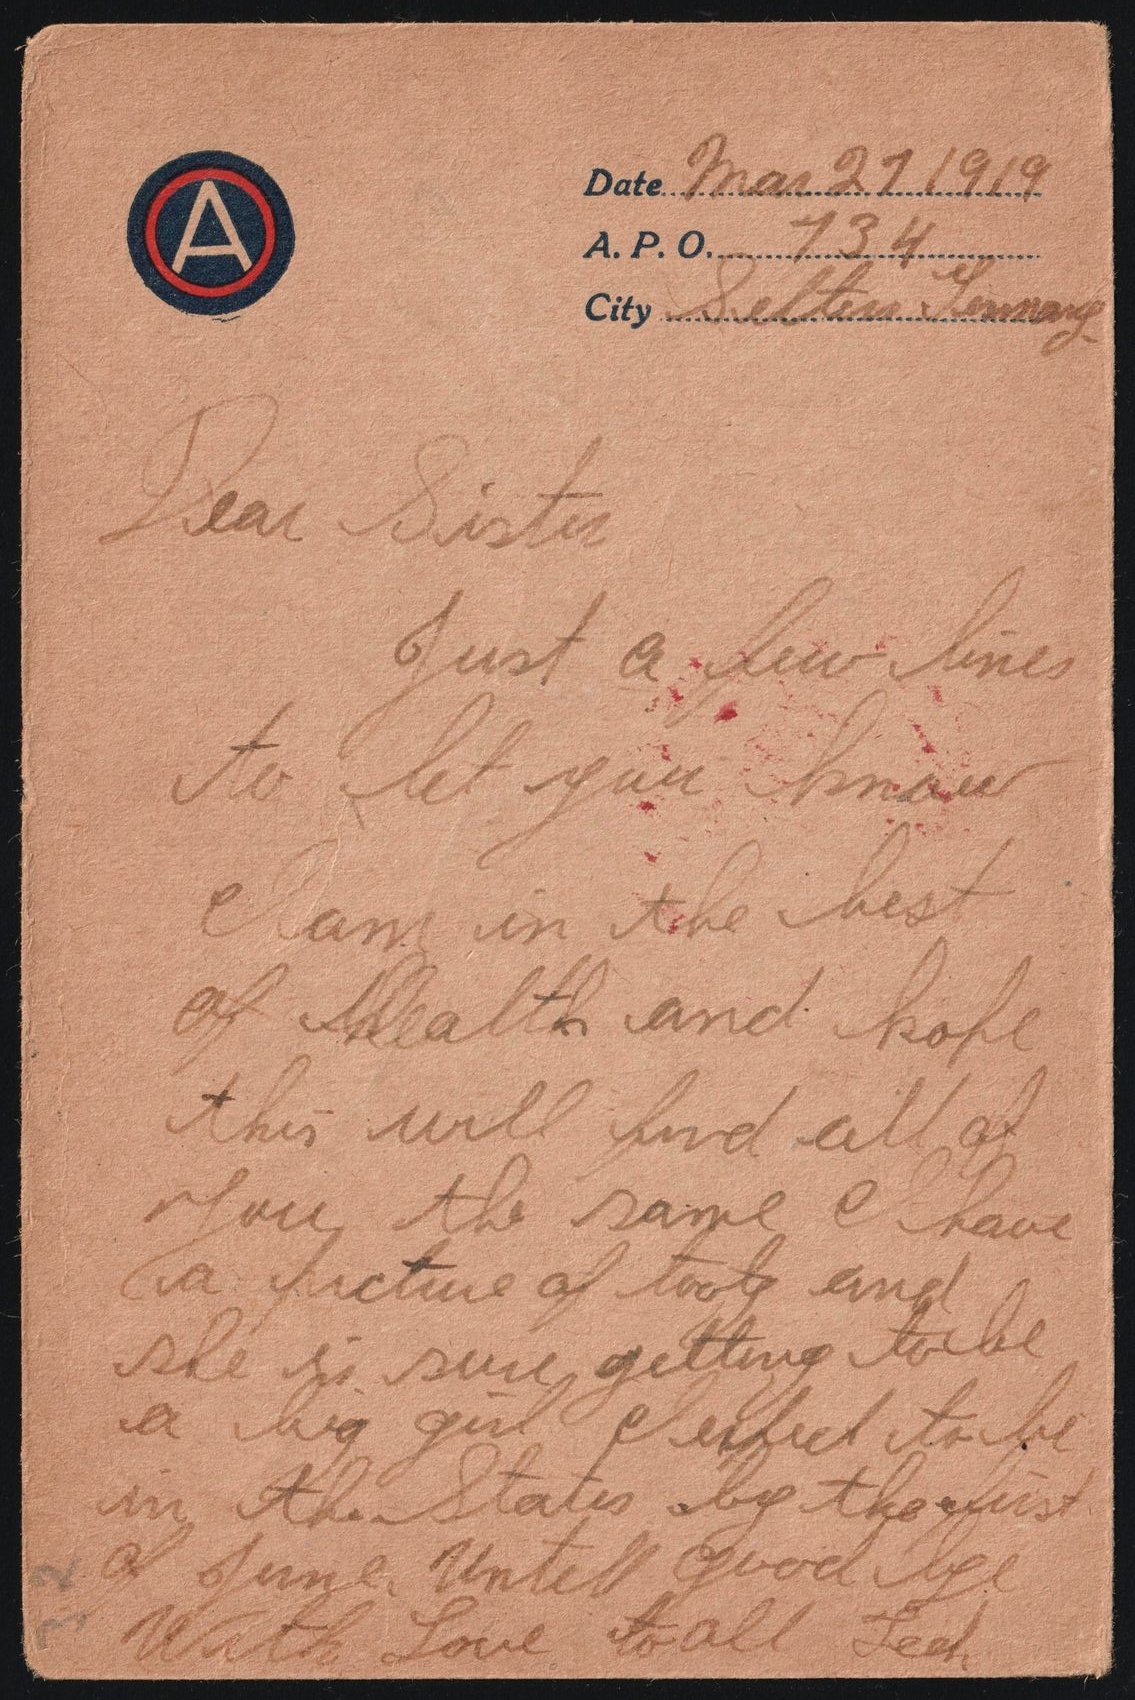 A
Date Mar 27 1919
A. P. O. 734
City Selters Germany
Dear Sister
Just a few lines
to let you know
I am in the best
of Health and hope
this will find all of
You the same I have
a picture of toots and
she is sure getting to be
a big girl I expect to be
in the States by the first
of June. Untell good bye
With Love to all Ted